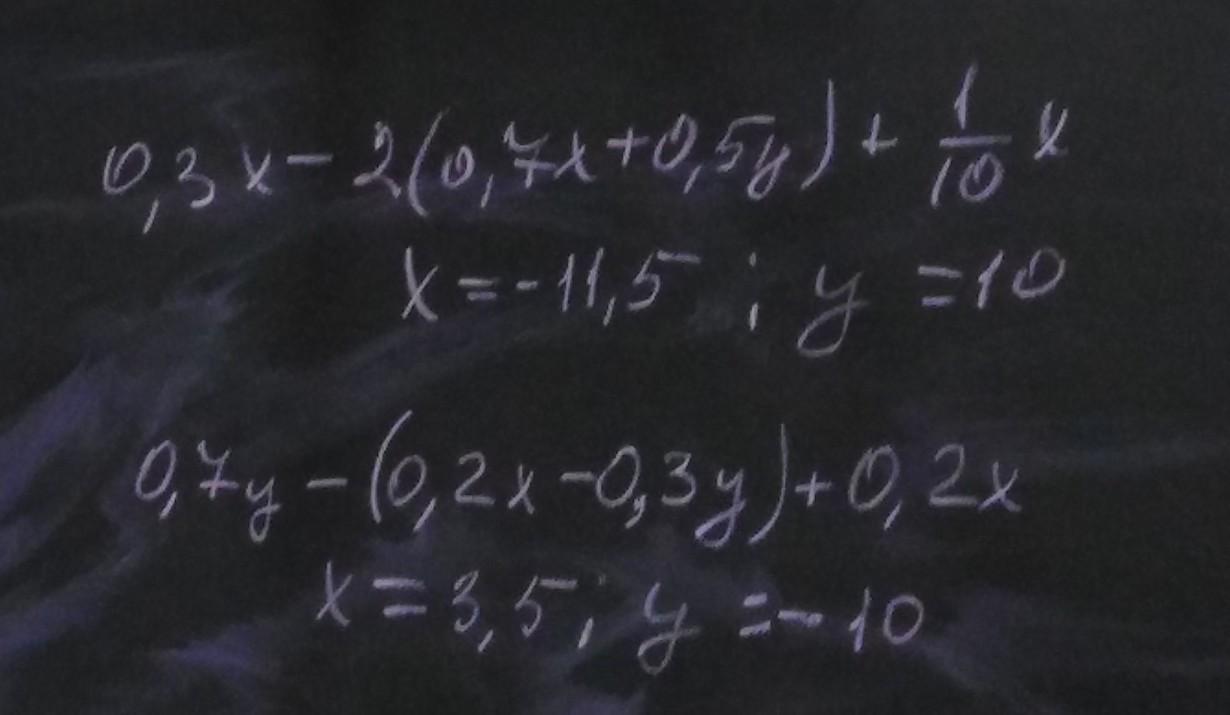 0,3x - 2(0,7x + 0,5y) + 1/10 x
x = -11,5 ; y = 10
0,7y - (0,2x - 0,3y) + 0,2x
x = 3,5 ; y = -10